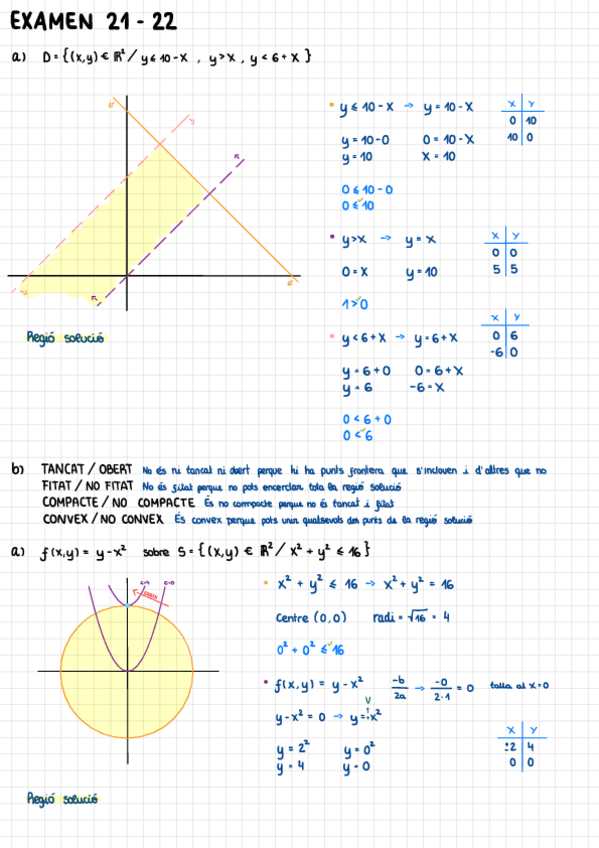 EXAMEN 21-22
a) D = {(x,y) ∈ ℝ² / y ≤ 10-x , y > x , y < 6+x }
• y ≤ 10-x → y = 10-x
x | y
0 | 10
10 | 0
y = 10-0 0 = 10-x
y = 10 x = 10
0 ≤ 10-0
0 ≤ 10
• y > x → y = x
x | y
0 | 0
5 | 5
0 = x y = 10
1 > 0
• y < 6+x → y = 6+x
x | y
0 | 6
-6 | 0
y = 6+0 0 = 6+x
y = 6 -6 = x
0 < 6+0
0 < 6
Regió solució
b) TANCAT / OBERT No és ni tancat ni obert perque hi ha punts frontera que s'inclouen i d'altres que no
FITAT / NO FITAT No és fitat perque no pots encerclar tota la regió solució
COMPACTE / NO COMPACTE És no compacte perque no és tancat i fitat
CONVEX / NO CONVEX És convex perque pots unir qualsevols dos punts de la regió solució
a) f(x,y) = y-x² sobre S = {(x,y) ∈ ℝ² / x² + y² ≤ 16 }
c=4 c=0
• x² + y² ≤ 16 → x² + y² = 16
Centre (0,0) radi = √16 = 4
0² + 0² ≤ 16
• f(x,y) = y-x² -b/2a → -0/2·1 = 0 talla al x=0
V
y-x² = 0 → y=+x²
x | y
±2 | 4
0 | 0
y = 2² y = 0²
y = 4 y = 0
Regió solució